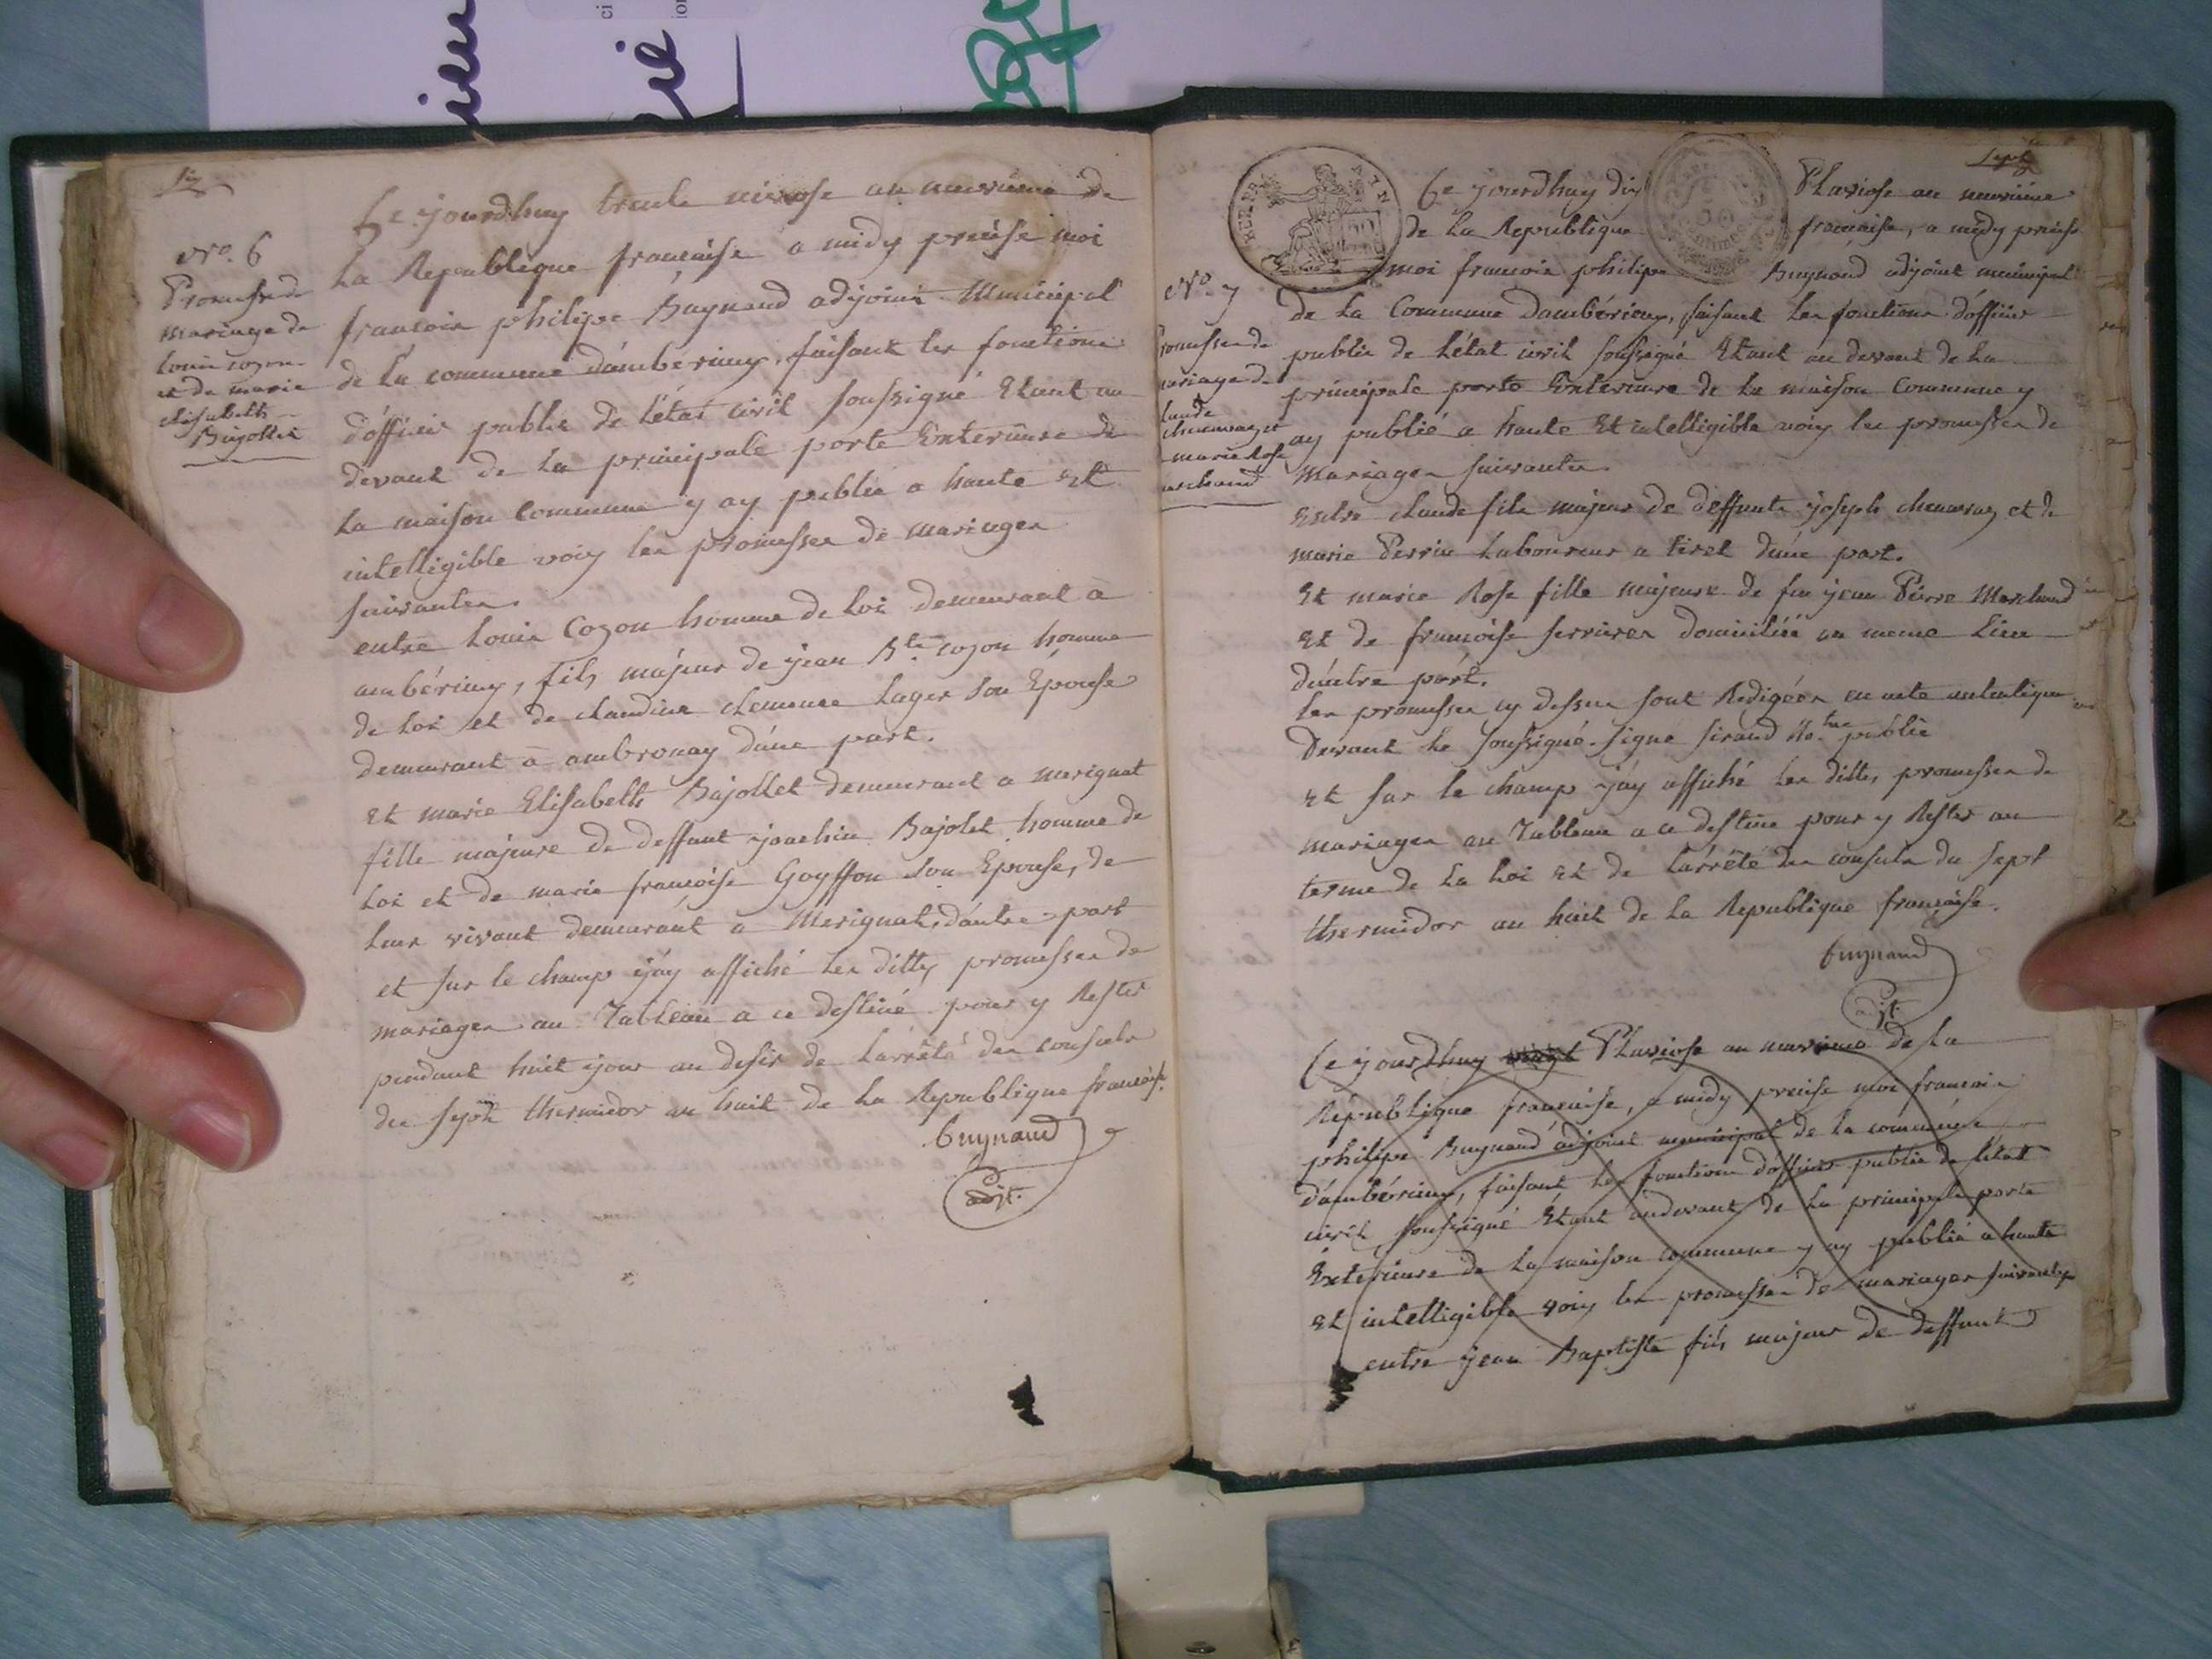 six
N.o 6
Promesse de
mariage de
louis cozon
et de marie
elisabeth
Bajollet
Ce jourdhuy trente nivose an neuvieme de
La Republique francaise a midy precise moi
francois philipe Buynand adjoint Municipal
de la commune dambérieux, faisant les fonctions
dofficier public de létat civil soussigné Etant au
devant de La principale porte Exterieure de
La maison commune y ay publié a haute Et
intelligible voix les promesses de mariages
suivantes.
entre Louis Cozon homme de loi demeurant à
ambérieux, fils majeur de jean Bte cozon homme
de loi et de claudine clemence Lager son Epouse
demeurant à ambronay dune part.
Et marie Elisabeth Bajollet demeurant a merignat
fille majeure de deffunt joachin Bajolet homme de
Loi et de marie francoise Goyffon son Epouse, de
leur vivant demeurant a Merignat, dautre part
et sur le champ jay affiché les dittes promesses de
mariages au Tableau a ce destiné pour y Rester
pendant huit jour au desir de larrêté des consuls
du sept thermidor an huit de La Republique francaise.
Buynand
adjt.
sept
N.o 7
promesse de
mariage de
claude
chenavaz et
marie Rose
marchand
Ce jourdhuy dix Pluviose an neuvieme
de La Republique francaise, a midy precise
moi francois philipe Buynand adjoint municipal
de La Commune Dambérieux, faisant les fonctions dofficier
public de létat civil soussigné Etant au devant de La
principale porte Exterieure de La maison Commune y
ay publié a haute Et intelligible voix les promesses de
Mariages suivantes.
Entre claude fils majeur de deffunts joseph chenavaz et de
marie Perrin Laboureur a tiret dune part.
Et marie Rose fille majeure de feu jean Pierre Marchand
Et de francoise serrieres domiciliée au meme Lieu
dautre part.
Les promesses cy dessus sont Redigées en acte autentique
Devant le soussigné. signé sirand Notre public
Et sur le champ jay affiché les dittes promesses de
mariages au Tableau a ce destiné pour y Rester au
terme de La loi Et de Larrêté des consuls du sept
thermidor an huit de La Republique francaise.
Buynand
adjt.
Ce jourdhuy vingt Pluviose an neuvieme de La
Republique francaise, a midy precise moi francois
philipe Buynand adjoint municipal de La commune
dambérieux, faisant les fonctions dofficier public de létat
civil, soussigné Etant audevant de La principale porte
Exterieure de La maison commune y ay publié a haute
Et intelligible voix les promesses de mariages suivantes
entre jean Baptiste fils majeur de deffunt